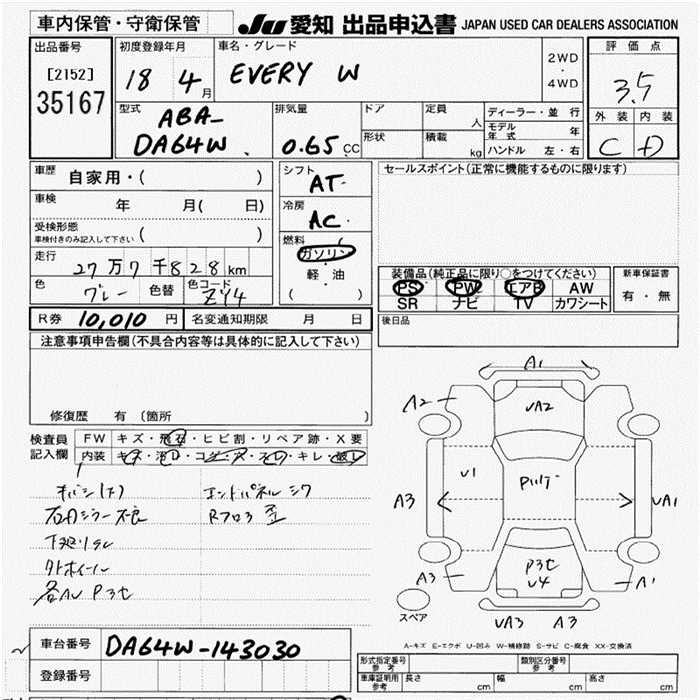 車内保管・守衛保管
JU 愛知 出品申込書 JAPAN USED CAR DEALERS ASSOCIATION
出品番号
[2152]
35167
初度登録年月
18 4月
車名・グレード
EVERY W
2WD
・
4WD
評価点
3.5
外装 内装
C D
型式
ABA-
DA64W
排気量
0.65 CC
ドア
形状
定員 人
積載 kg
ディーラー・並行
モデル年式 年
ハンドル 左・右
車歴 自家用・( )
車検 年 月( 日)
受検形態
車検付きのみ記入して下さい ( )
走行 27万7千828km
色 グレー 色替 色コード ZY4
シフト
AT
冷房
AC
燃料
ガソリン
・
軽・油
( )
セールスポイント(正常に機能するものに限ります)
装備品(純正品に限り○をつけてください)
PS PW エアB AW
SR ナビ TV カワシート
新車保証書
有・無
R券 10,010 円 名変通知期限 月 日
後日品
注意事項申告欄(不具合内容等は具体的に記入して下さい)
修復歴 有 (箇所 )
検査員
記入欄
FW キズ・飛石・ヒビ割・リペア跡・X要
内装 キズ・汚レ・コゲ・穴・スレ・キレ・破レ
エンドパネルシワ
下廻リサビ
外ホイール
各AU P3セ
A1
A2
UA2
U1
A3
UA1
P3セ
U4
A3
A1
スペア
UA3 A3
A-キズ E-エクボ U-凹み W-補修跡 S-サビ C-腐食 XX-交換済
車台番号 DA64W-143030
登録番号
形式指定番号
参考
類別区分番号
参考
車庫証明用
参考
長さ cm 幅 cm 高さ cm